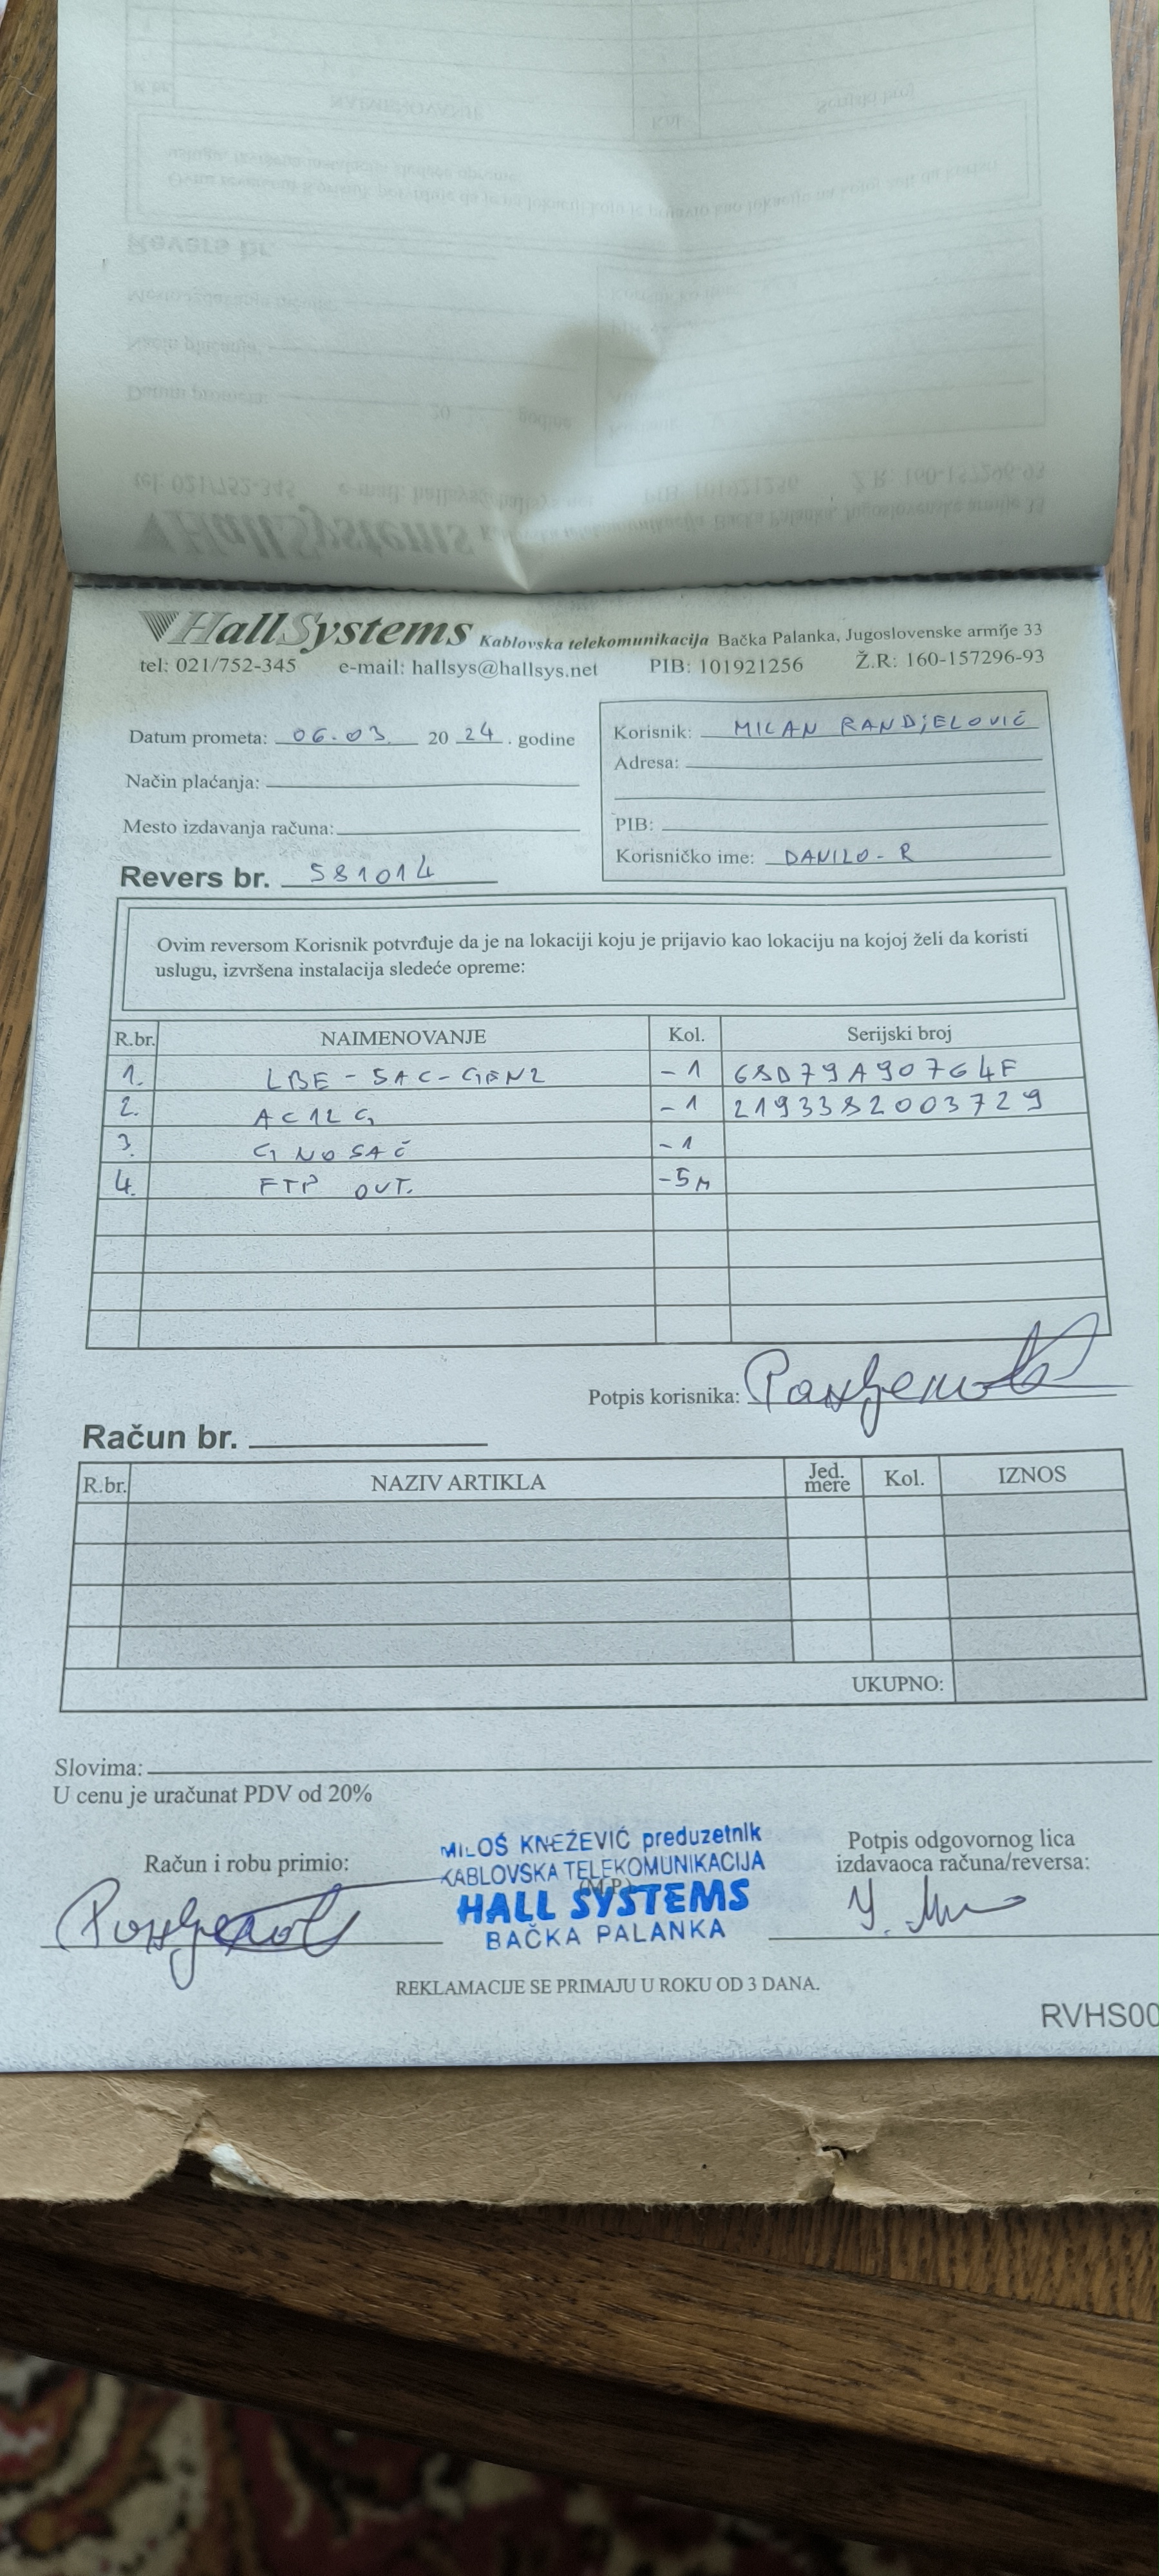 HallSystems Kablovska telekomunikacija Bačka Palanka, Jugoslovenske armije 33
tel: 021/752-345 e-mail: hallsys@hallsys.net PIB: 101921256 Ž.R: 160-157296-93
Datum prometa: 06.03. 2024. godine
Način plaćanja:
Mesto izdavanja računa:
Revers br. 581014
Korisnik: MILAN RANDjELOVIĆ
Adresa:
PIB:
Korisničko ime: DANILO-R
Ovim reversom Korisnik potvrđuje da je na lokaciji koju je prijavio kao lokaciju na kojoj želi da koristi
uslugu, izvršena instalacija sledeće opreme:
R.br. NAIMENOVANJE Kol. Serijski broj
1. LBE-5AC-GEN2 -1 68D79A90764F
2. AC12G -1 2193382003729
3. G NOSAČ -1
4. FTP OUT. -5m
Potpis korisnika:
Račun br.
R.br. NAZIV ARTIKLA Jed. mere Kol. IZNOS
UKUPNO:
Slovima:
U cenu je uračunat PDV od 20%
Račun i robu primio:
MILOŠ KNEŽEVIĆ preduzetnik
KABLOVSKA TELEKOMUNIKACIJA
(M.P.)
HALL SYSTEMS
BAČKA PALANKA
Potpis odgovornog lica
izdavaoca računa/reversa:
REKLAMACIJE SE PRIMAJU U ROKU OD 3 DANA.
RVHS00